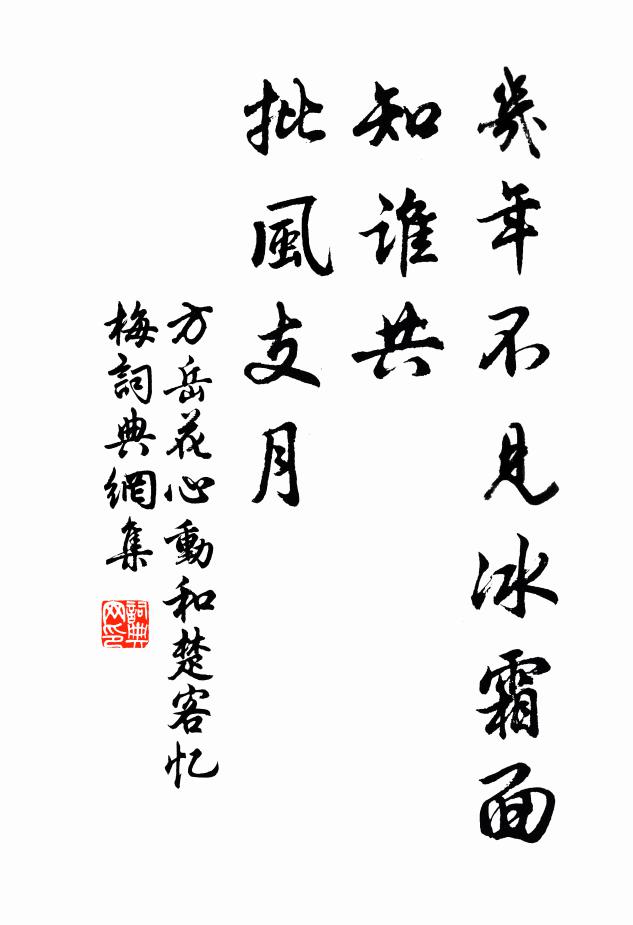 幾年不見冰霜面
知誰共
批風支月
方岳花心動和楚客忆
梅詞典網集
詞典网印